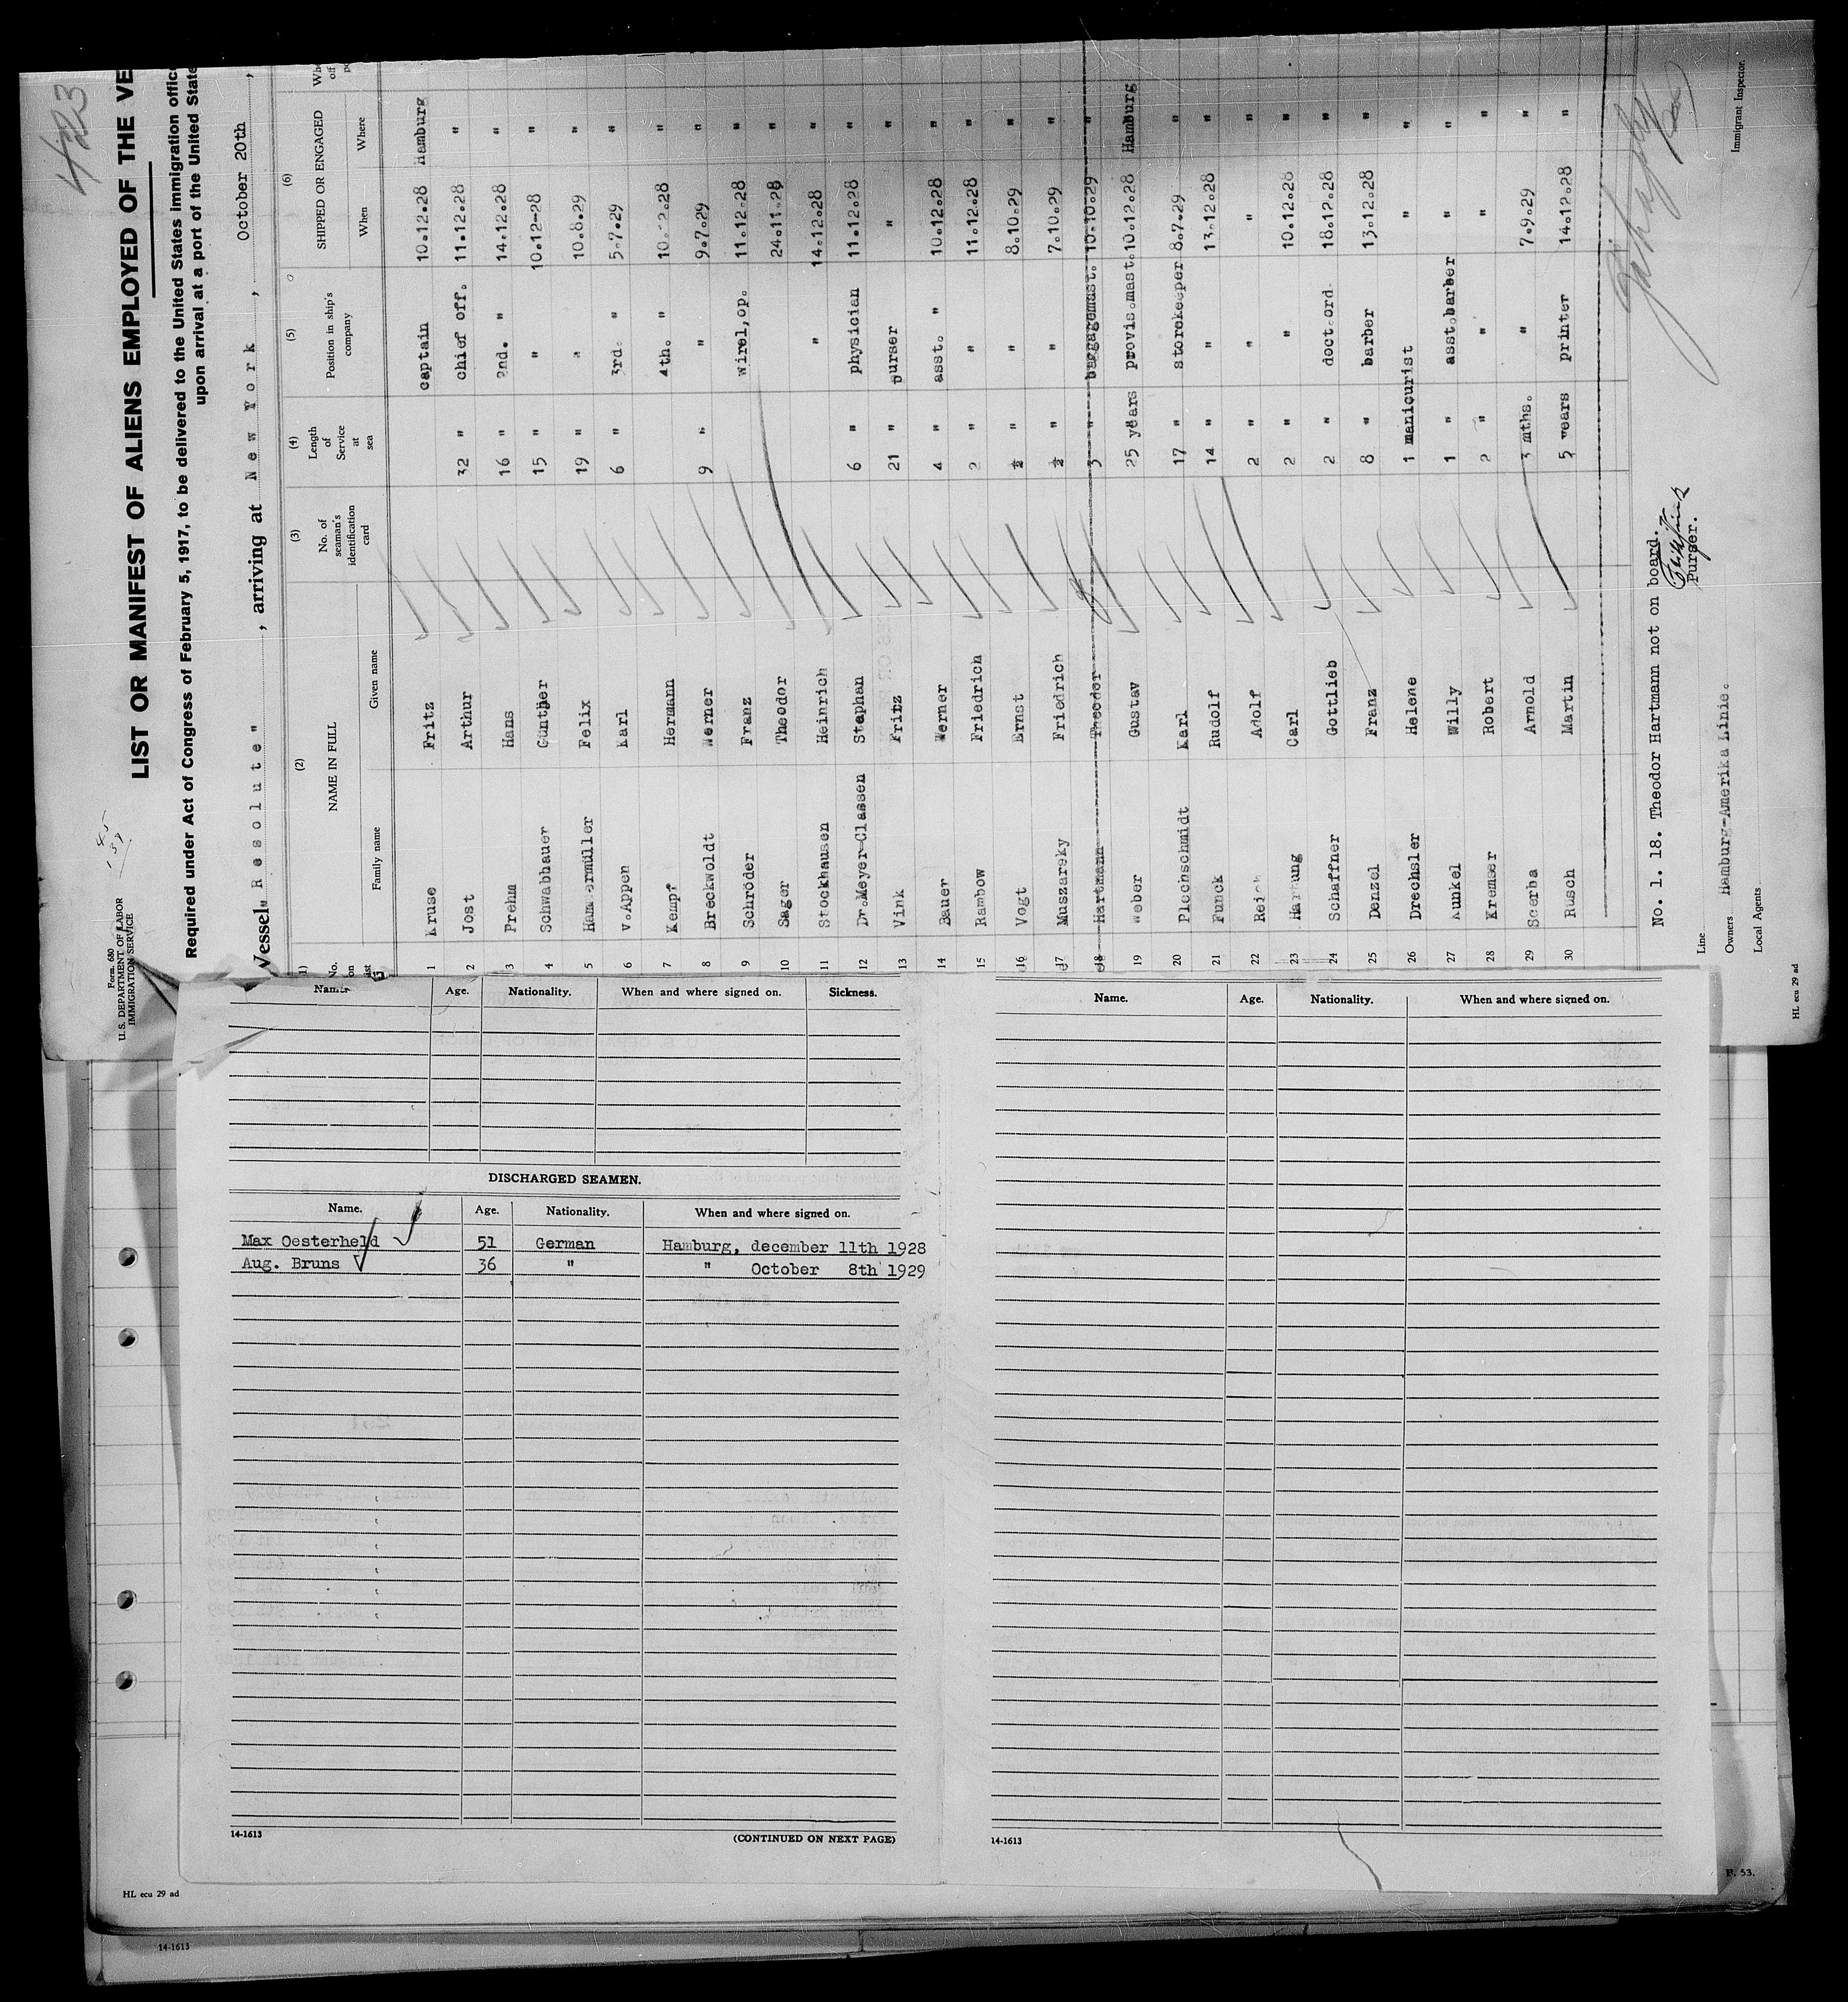 4223
Form 680
U.S. DEPARTMENT OF LABOR
IMMIGRATION SERVICE
LIST OR MANIFEST OF ALIENS EMPLOYED OF THE VE
Required under Act of Congress of February 5, 1917, to be delivered to the United States immigration offic
upon arrival at a port of the United State
Vessel "Resolute", arriving at New York, October 20th,
(2) (3) (4) (5) (6)
No. on list NAME IN FULL No. of seaman's identification card Length of Service at sea Position in ship's company SHIPPED OR ENGAGED
Family name Given name When Where
1 Kruse Fritz captain 10.12.28 Hamburg
2 Jost Arthur 32 " chief off. 11.12.28 "
3 Prehm Hans 16 " 2nd. " 14.12.28 "
4 Schwabbauer Günther 15 " " 10.12-28 "
5 Hammermüller Felix 19 " " 10.8.29 "
6 v.Appen Karl 6 " 3rd. " 5.7.29 "
7 Kempf Hermann 4th. " "
8 Breckwoldt Werner 9 " " 9.7.29 "
9 Schröder Franz wirel,op. 11.12.28 "
10 Sager Theodor 24.11.28 "
11 Stockhausen Heinrich " 14.12.28 "
12 Dr.Meyer-Classen Stephan 6 " physician 11.12.28 "
13 Vink Fritz 21 " purser " "
14 Bauer Werner 4 " asst. " 10.12.28 "
15 Rambow Friedrich 2 " " 11.12.28 "
16 Vogt Ernst ½ " " 8.10.29 "
17 Muszarsky Friedrich ½ " " 7.10.29 "
18 Hartmann Theodor 3 " baggagemast. 10.10.29 "
19 Weber Gustav 25 years provis.mast. 10.12.28 Hamburg
20 Plechschmidt Karl 17 " storekeeper 8.7.29 "
21 Funck Rudolf 14 " " 13.12.28 "
22 Reich Adolf 2 " " " "
23 Hartung Carl 2 " " 10.12.28 "
24 Schaffner Gottlieb 2 " doct.ord. 18.12.28 "
25 Denzel Franz 8 " barber 13.12.28 "
26 Drechsler Helene 1 manicurist " "
27 Kunkel Willy 1 " asst.barber " "
28 Kremser Robert 2 " " " "
29 Scerba Arnold 3 mths. " 7.9.29 "
30 Rusch Martin 5 years printer 14.12.28 "
No. 1. 18. Theodor Hartmann not on board.
Purser.
Line
Owners Hamburg-Amerika Linie.
Local Agents
Immigrant Inspector.
HL ecu 29 ad
Name. Age. Nationality. When and where signed on. Sickness.
DISCHARGED SEAMEN.
Name. Age. Nationality. When and where signed on.
Max Oesterheld 51 German Hamburg, december 11th 1928
Aug. Bruns 36 " " October 8th 1929
14-1613
(CONTINUED ON NEXT PAGE)
Name. Age. Nationality. When and where signed on.
14-1613
F. 53.
HL ecu 29 ad
14-1613